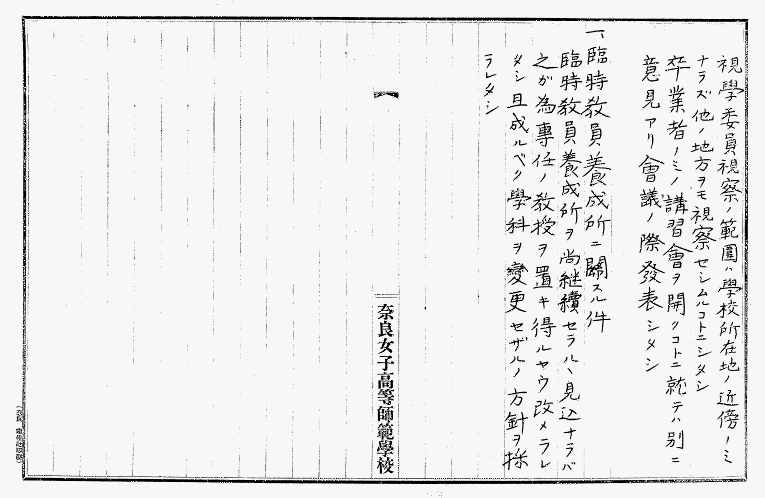 視學委員視察ノ範圍ハ學校所在地ノ近傍ノミ
ナラズ他ノ地方ヲモ視察セシムルコトニシタシ
卒業者ノミノ講習會ヲ開クコトニ就テハ別ニ
意見アリ會議ノ際發表シタシ
一、臨時敎員養成所ニ關スル件
臨時敎員養成所ヲ尚継續セラルヽ見込ナラバ
之が為專任ノ敎授ヲ置キ得ルヤウ改メラレ
タシ且成ルベク學科ヲ變更セザルノ方針ヲ採
ラレタシ
奈良女子高等師範學校